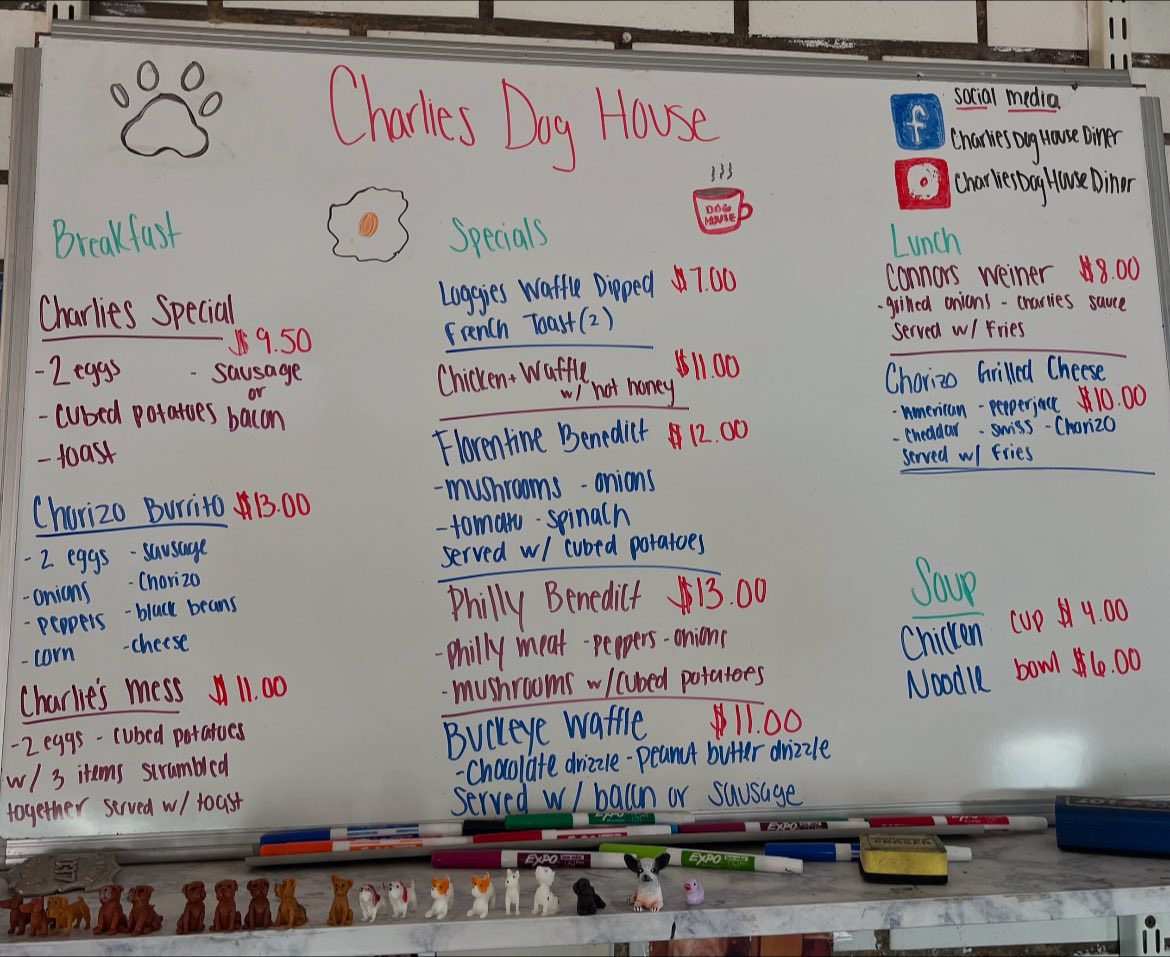 Charlies Dog House
social media
f
CharliesDogHouseDiner
CharliesDogHouseDiner
DOG
HOUSE
Breakfast
Charlies Special
$9.50
- 2 eggs - sausage
or
- cubed potatoes bacon
- toast
Chorizo Burrito $13.00
- 2 eggs - sausage
- onions - Chorizo
- peppers - black beans
- corn - cheese
Charlie's mess $11.00
- 2 eggs - cubed potatoes
w/ 3 items scrambled
together served w/ toast
Specials
Loggies Waffle Dipped $7.00
French Toast (2)
Chicken + Waffle $11.00
w/ hot honey
Florentine Benedict $12.00
- mushrooms - onions
- tomato - spinach
served w/ cubed potatoes
Philly Benedict $13.00
- Philly meat - peppers - onions
- mushrooms w/ cubed potatoes
Buckeye Waffle $11.00
- Chocolate drizzle - Peanut butter drizzle
served w/ bacon or sausage
Lunch
Connors weiner $8.00
- grilled onions - charlies sauce
served w/ Fries
Chorizo Grilled Cheese
- American - pepperjack $10.00
- cheddar - swiss - Chorizo
served w/ Fries
Soup
Chicken cup $4.00
Noodle bowl $6.00
EXPO
EXPO
EXPO
EXPO
EXPO